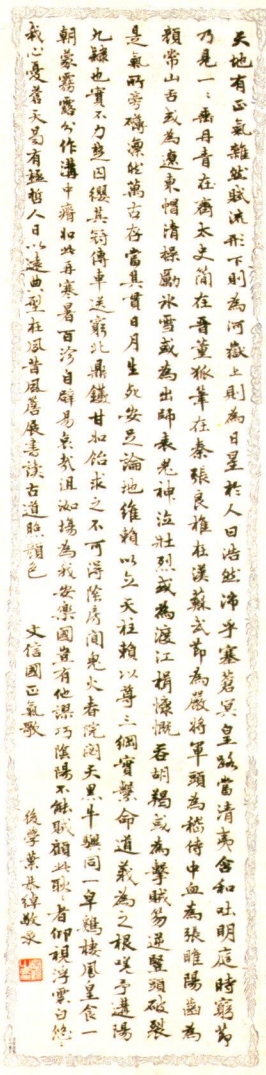 天地有正氣雜然賦流形下則為河嶽上則為日星於人曰浩然沛乎塞蒼冥皇路當清夷含和吐明庭時窮節
乃見一一垂丹青在齊太史簡在晉董狐筆在秦張良椎在漢蘇武節為嚴將軍頭為嵇侍中血為張睢陽齒為
顏常山舌或為遼東帽清操勵冰雪或為出師表鬼神泣壯烈或為渡江楫慷慨吞胡羯或為擊賊笏逆豎頭破裂
是氣所旁礴凜然萬古存當其貫日月生死安足論地維賴以立天柱賴以尊三綱實繫命道義為之根嗟予遘陽
九隸也實不力楚囚纓其冠傳車送窮北鼎鑊甘如飴求之不可得陰房闃鬼火春院閟天黑牛驥同一皁雞棲鳳皇食一
朝蒙霧露分作溝中瘠如此再寒暑百沴自辟易哀哉沮洳場為我安樂國豈有他謬巧陰陽不能賊顧此耿〻者仰視浮雲白悠〻
我心憂蒼天曷有極哲人日以遠典型在夙昔風簷展書讀古道照顏色
文信國正氣歌
後學黃長緯敬录